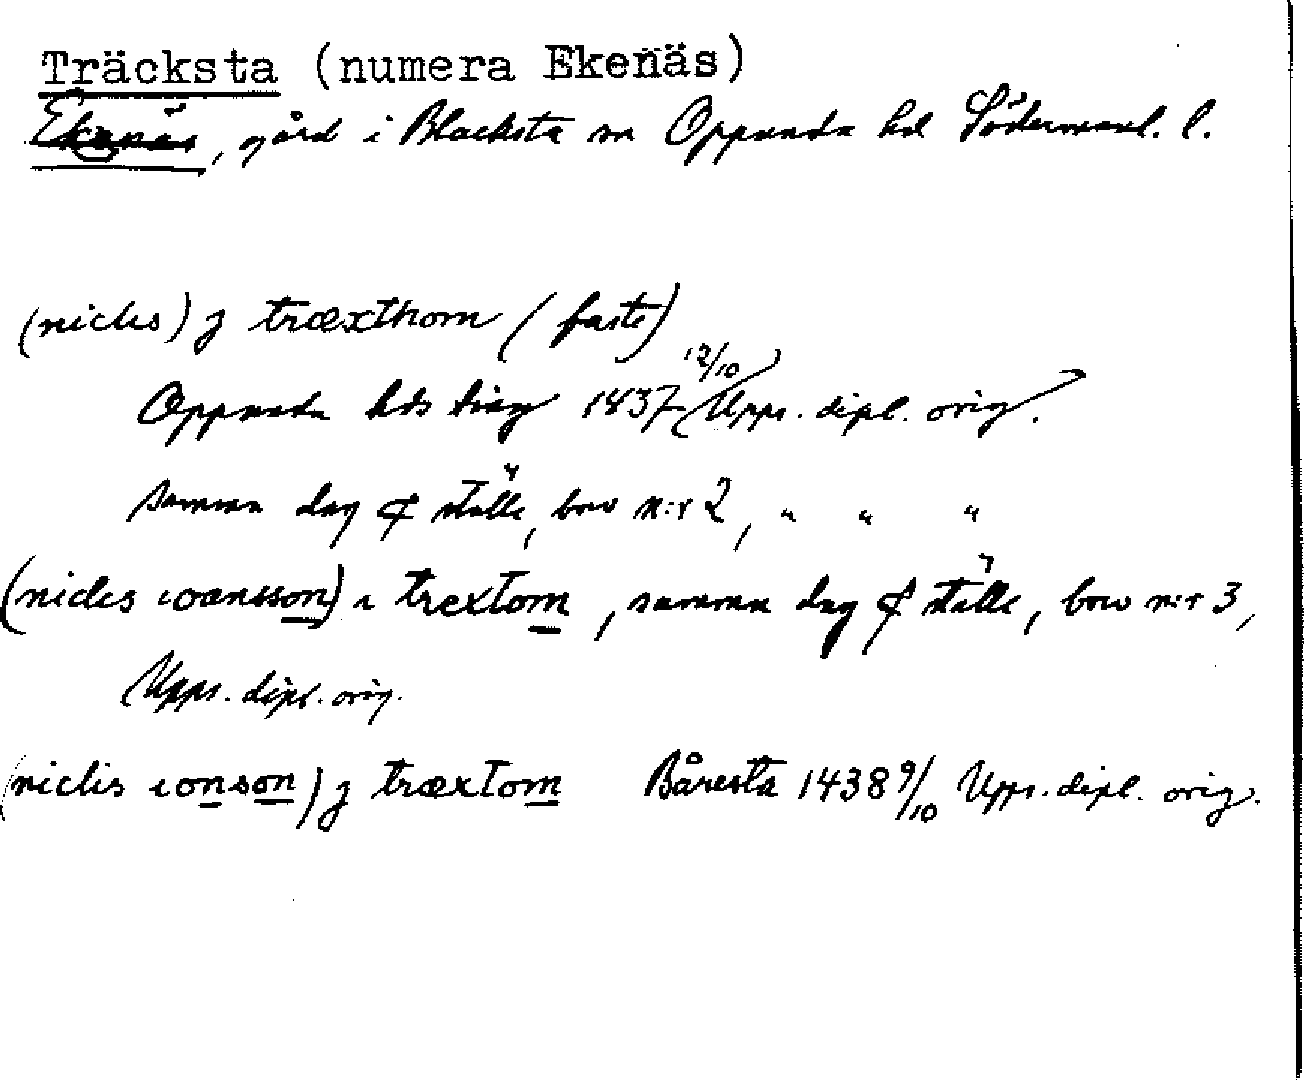 Träcksta (numera Ekenäs)
Ekenäs, gård i Blacksta sn Oppunda hd Södermanl. l.
(niclis) j træxthom (faste)
Oppunda hds ting 1437 12/10 Upps. dipl. orig.
samma dag & ställe, brev n:r 2, " " "
(niclis ioansson) i trextom, samma dag & ställe, brev n:r 3,
Upps. dipl. orig.
(niclis ionson) j træxtom Båresta 1438 9/10 Upps. dipl. orig.